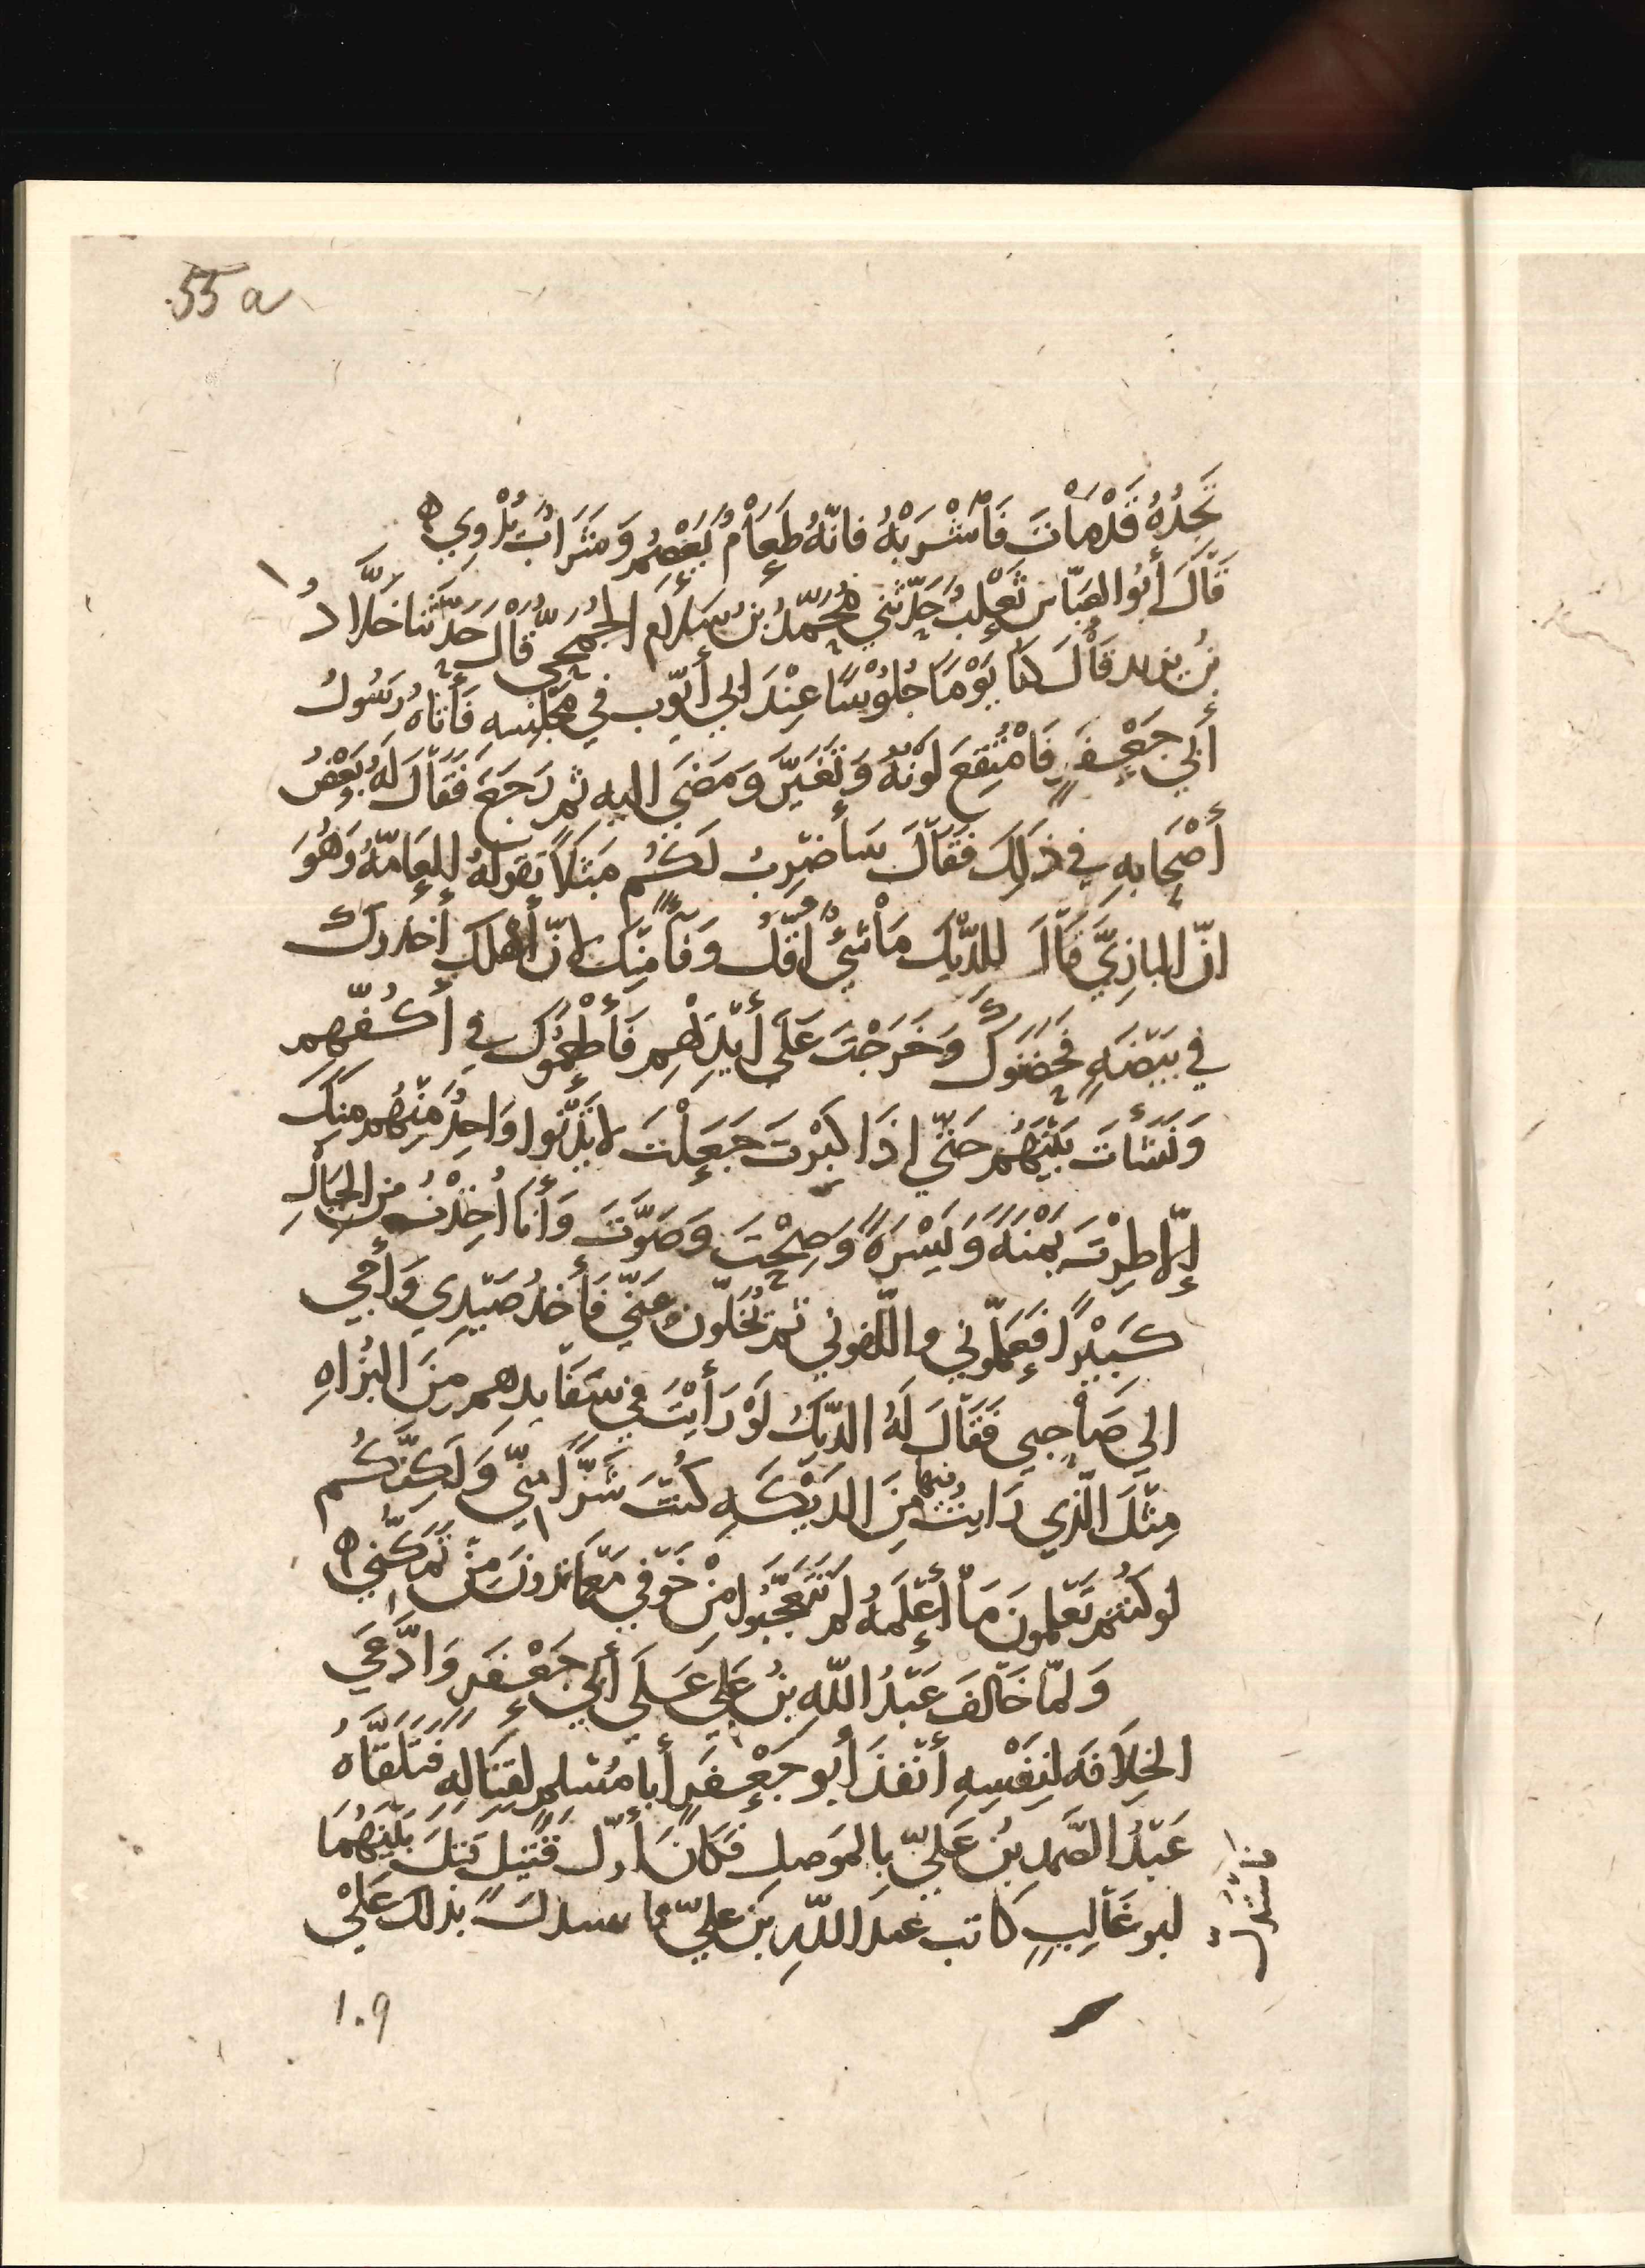 55 a
تَجِدُهُ قَدْ مَاتَ فَاشْرَبْهُ فانّهُ طَعَامٌ يَعْصِمُ وَشَرَابٌ يُرْوِي ه
قَالَ أَبُو العَبّاسِ ثَعْلَبٌ حَدَّثَنِي مُحَمَّدُ بْنُ سَلَّامٍ الجُمَحِيُّ قال حَدَّثَنَا خَلَّادُ
بنُ يزيد قَالَ كنّا يَوْمًا جُلُوْسًا عِنْدَ ابِي أَيّوب في مَجْلِسِهِ فَأَتَاهُ رَسُولُ
أَبِي جَعْفَرٍ فَامْتُقِعَ لَوْنُهُ وَتَغَيَّرَ وَمَضَى اليه ثم رَجَعَ فَقَالَ لَهُ بَعْضُ
أَصْحَابِهِ فِي ذَلِكَ فَقَالَ سَأَضْرِبُ لَكُم مَثَلًا تقولُهُ العَامّةُ وَهُوَ
انّ البازِيَّ قَالَ للدِّيْك مَا شَيْءٌ أَقَلُّ وَفَآءً مِنْكَ انّ أَهْلَكَ أَخَذُوكَ
في بَيْضَةٍ فَحَضَنُوكَ وَخَرَجْتَ عَلَى أَيْدِيْهِم فَأَطْعَمُوكَ في أَكُفِّهِم
وَنَشَأْتَ بَيْنَهُم حَتّى إذَا كَبِرْتَ جَعَلْتَ لَا يَدْنُوا وَاحِدٌ مِنْهُم مِنْكَ
إلّا طِرْتَ يَمْنَةً وَيَسْرَةً وَصِحْتَ وَصَوَّتَّ وَأَنَا أُخِذْتُ من الجبَالِ
كَبِيْرًا فَعَلّمُونِي وألّفوني ثم تُخَلُّون عَنّي فَآخُذُ صَيْدِي وَأَجِي
الى صَاحِبِي فَقَالَ لَهُ الدِّيكُ لَوْ رَأَيْتَ في سَفَافيدِهم مِنَ البُزَاةِ
مِثْلَ الَّذِي رَايتُ فيها مِنَ الدِّيَكَةِ كُنْتَ شَرًّا مِنّي وَلَكِنَّكُم
لو كُنْتُم تَعْلمونَ مَا أَعْلَمُهُ لم تَتَعَجَّبُوا مِنْ خَوْفي مَعَ مَا تَرَونَ مِنْ تَمَكُّنِي ه
وَلمّا خَالَفَ عَبْدُ اللّهِ بنُ عَلِيٍّ عَلَى أَبِي جَعْفَرٍ وَادَّعَى
الخِلَافَةَ لِنَفْسِهِ أَنْفَذَ أَبُو جَعْفَرٍ أَبا مُسْلِمٍ لِقِتَالِهِ فَتَلَقَّاهُ
عَبْدُ الصَّمَدِ بْنُ عَلِيٍّ بالمَوصِلِ فَكَانَ أَوّل قَتِيلٍ قُتِلَ بَيْنَهُمَا
ابو غَالِبٍ كَاتب عبد اللّهِ بنِ عليٍّ بذلك عَلَى
1.9